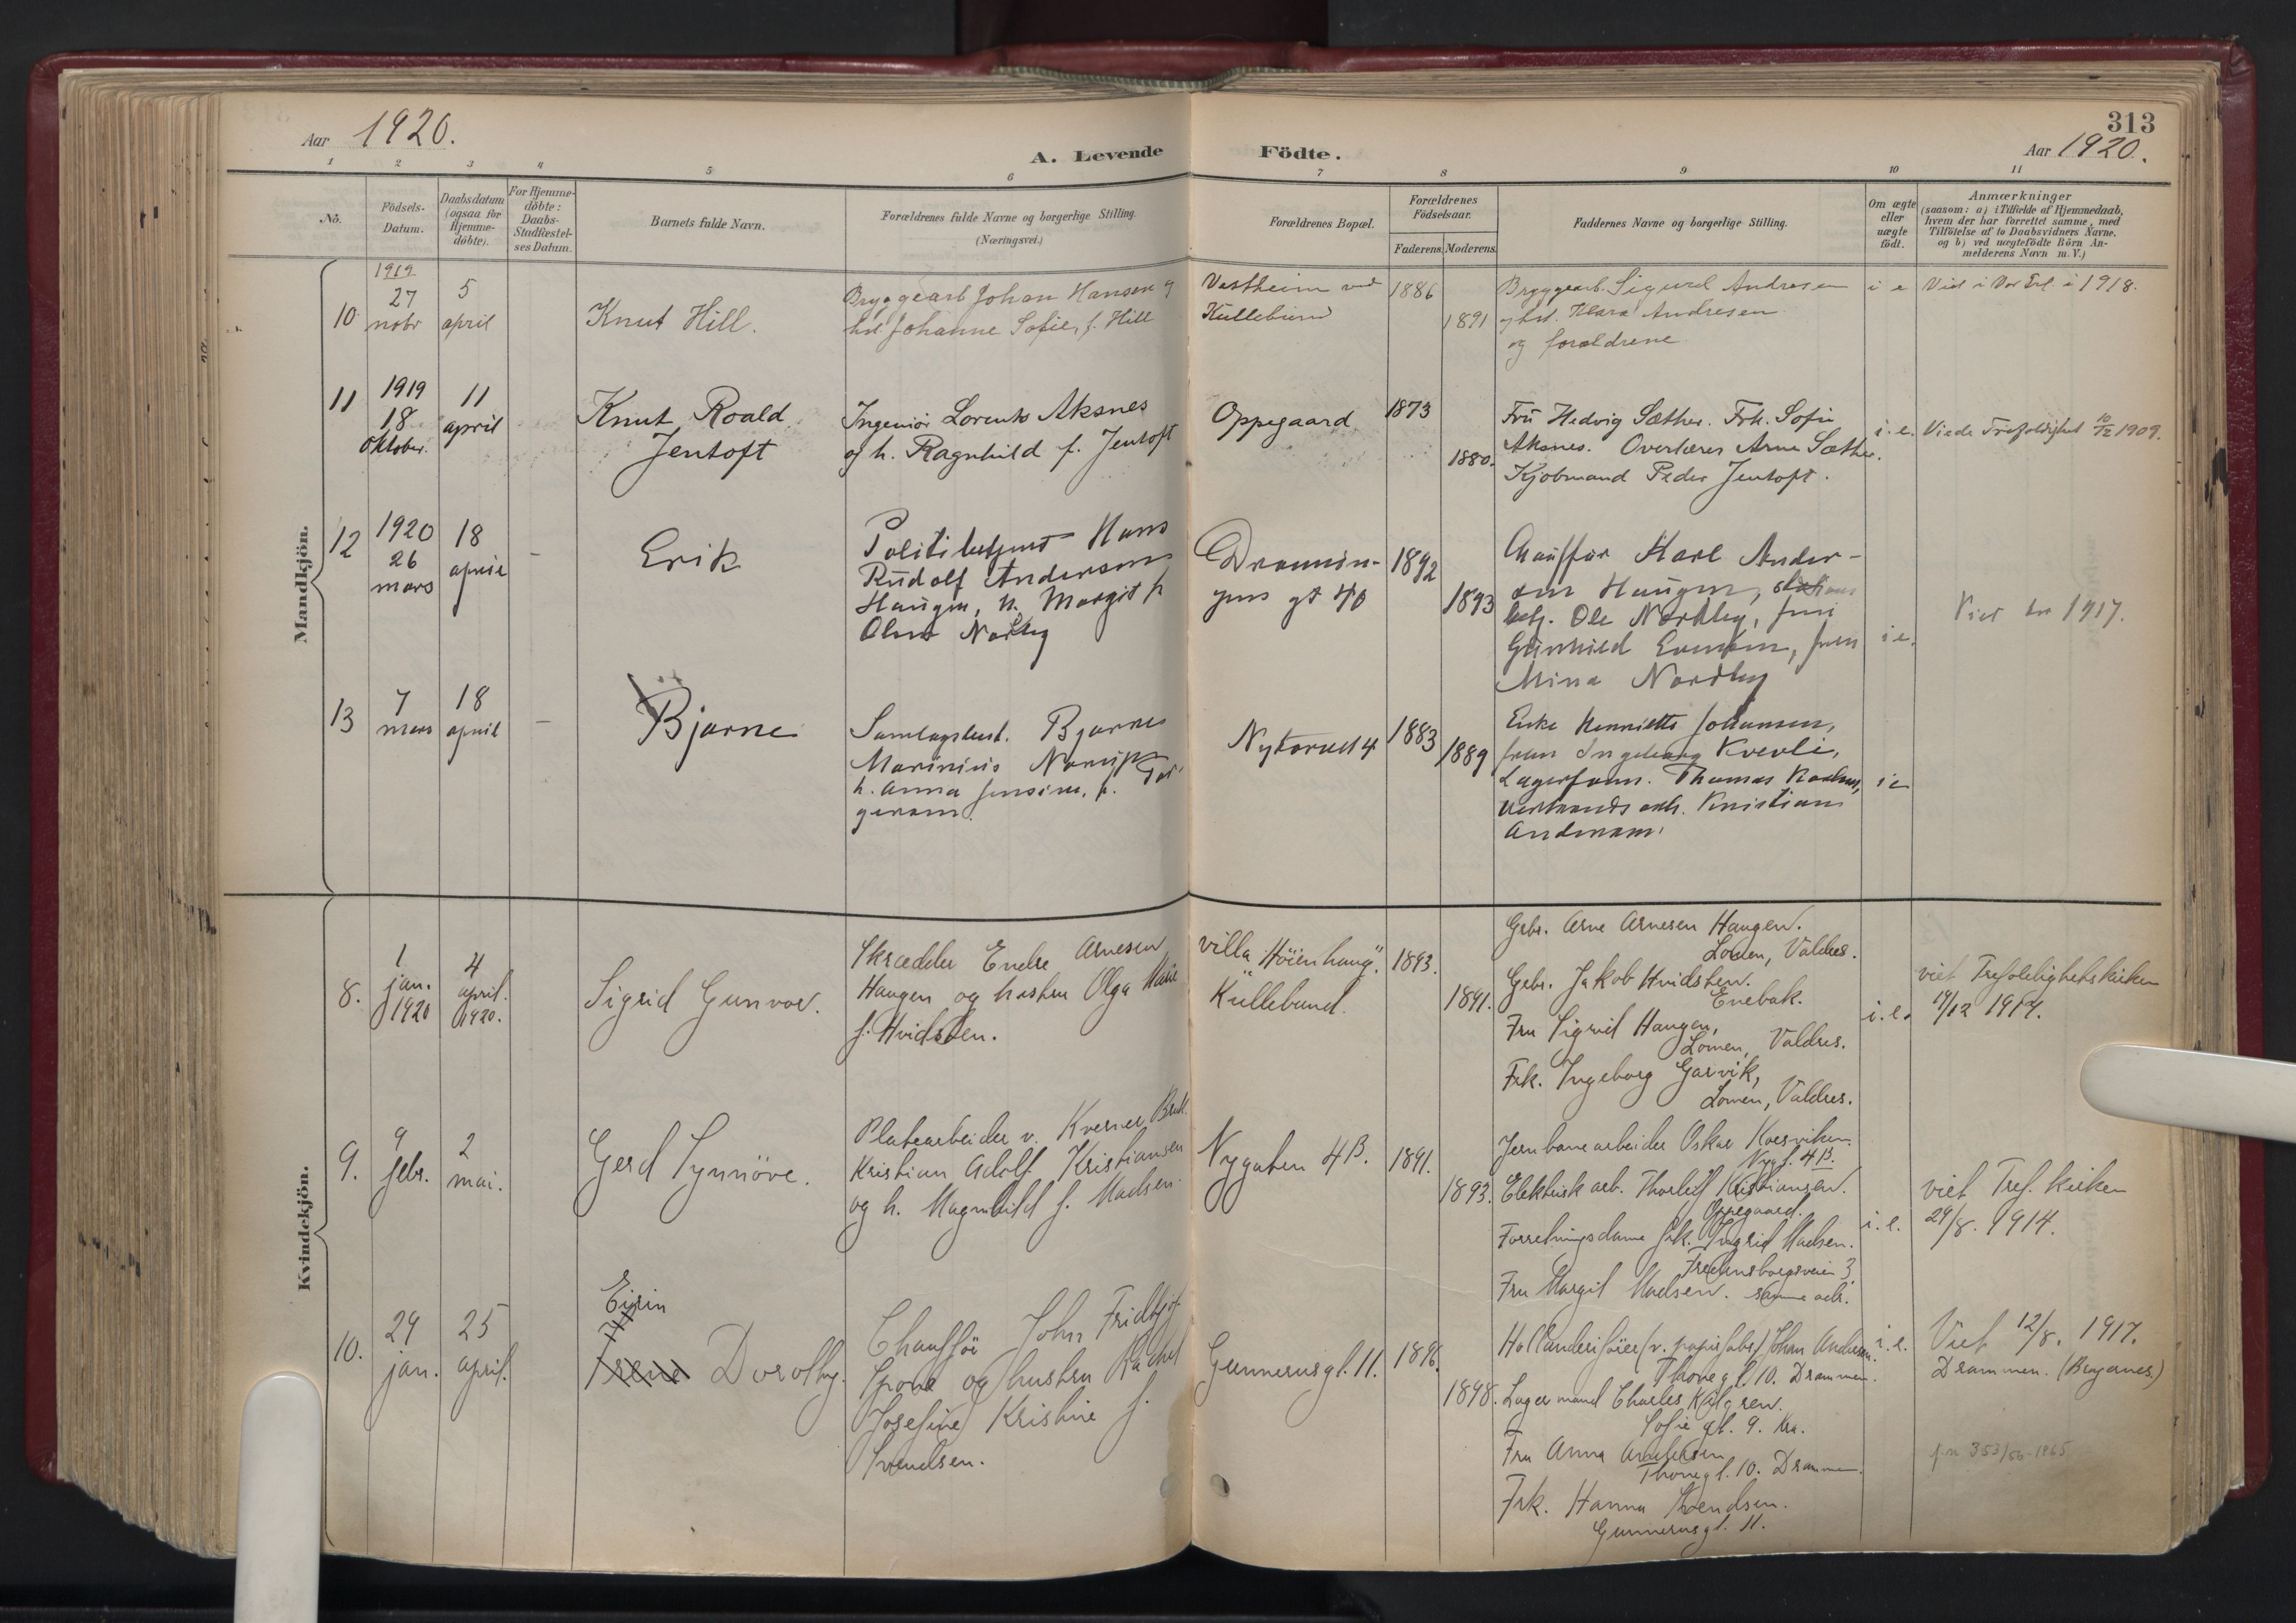 Aar 1920.
A. Levende
Födte.
313
Aar 1920.
1 2 3 4 5 6 7 8 9 10 11
No.
Födsels-
Datum.
Daabsdatum
(ogsaa for
Hjemme-
döbte).
For Hjemme-
döbte:
Daabs-
Stadfæstel-
ses Datum.
Barnets fulde Navn.
Forældrenes fulde Navne og borgerlige Stilling.
(Næringsvei.)
Forældrenes Bopæl.
Forældrenes
Födselsaar.
Faderens.
Moderens.
Faddernes Navne og borgerlige Stilling.
Om ægte
eller
uægte
födt.
Anmærkninger
(saasom: a) i Tilfælde af Hjemmedaab,
hvem der har forrettet samme, med
Tilföielse af to Daabsvidners Navne.
og b) ved uægtefödte Börn An-
melderens Navn m. V.)
Mandkjön.
10
1919
27
nobr
5
april
Knut Hill.
Bryggearb Johan Hansen og
hst Johanne Sofie, f. Hill
Vestheim ved
Kullebund
1886
1891
Bryggearb. Sigurd Andresen
og hst. Klara Andresen
og forældrene
i e
Viet i Vor Frl. i 1918.
11
1919
18
Oktober.
11
april
Knut Roald
Jentoft
Ingeniör Lorents Aksnes
og h. Ragnhild f. Jentoft
Oppegaard
1873
1880.
Fru Hedvig Sæther. Frk. Sofie
Aksnes. Overlærer Arne Sæther.
Kjöbmand Peder Jentoft.
i. e.
Viede Trefoldighet 10/12 1909.
12
1920
26
mars
18
april
-
Erik
Politibetjent Hans
Rudolf Anderson
Haugen, h. Margit f.
Olsen Nordby
Dronnin-
gens gt 40
1892
1893
Chauffør Karl Ander-
sen Haugen,
betj. Ole Nordby, frui
Gunhild Evensen, fruen
Mina Nordby
i e.
Viet 1917.
13
7
mars
18
april
-
Bjarne
Samlagsbest. Bjarne
Marinius Narup
h. Anna Jensine, f. Tor
gersen.
Nytorvet 4
1883
1889
Enke Henriette Johansen,
fruen Ingeborg Kvevli,
Lagerform. Thomas
arb. Kristian
Andersen.
i e
Kvindekjön.
8.
1
jan.
1920
4
april.
1920.
Sigrid Gunvor.
Skrædder Endre Arnesen
Haugen og hustru Olga Marie
f. Hvidsten.
villa "Höienhaug".
Kullebund.
1893.
1891.
Gbr. Arne Arnesen Haugen.
Lomen, Valdres.
Gbr. Jakob Hvidsten.
Enebak.
Fru Sigrid Haugen,
Lomen, Valdres.
Frk. Ingeborg Garvik,
Lomen, Valdres.
i. e.
viet Trefoldighetskirken
19/12 1914.
9.
9
febr.
2
mai.
Gerd Synnöve.
Platearbeider v. Kværner Bruk
Kristian Adolf Kristiansen
og h. Magnhild f. Madsen.
Nygaten 4B.
1891.
1893.
Jernbanearbeider Oskar Korsviken.
Nygt. 4B.
Elektrisk arb. Thorleif Kristiansen.
Oppegaard.
Forretningsdame frk. Ingrid Madsen.
Fredensborgsveien 3.
Fru Margit Madsen. samme adr.
i. e.
viet Tref. kirken
29/8. 1914.
10.
29
jan.
25
april.
Eirin
Irene Dorothy.
Chaufför John Fridtjof
Spone og hustru Rachel
Josefine Kristine f.
Svendsen.
Gunnerusgt. 11.
1896.
1898.
Hollenderiföier (v. papirfabr) Johan Andersen.
Thonegt. 10. Drammen.
Lagermand Charles Kalgren.
Sofie gt. 9. Kra.
Fru Anna Andersen
Thonegt. 10. Drammen.
Frk. Hanna Svendsen.
Gunnerusgt. 11.
i. e.
Viet 12/8. 1917.
Drammen. (Bragernes.)